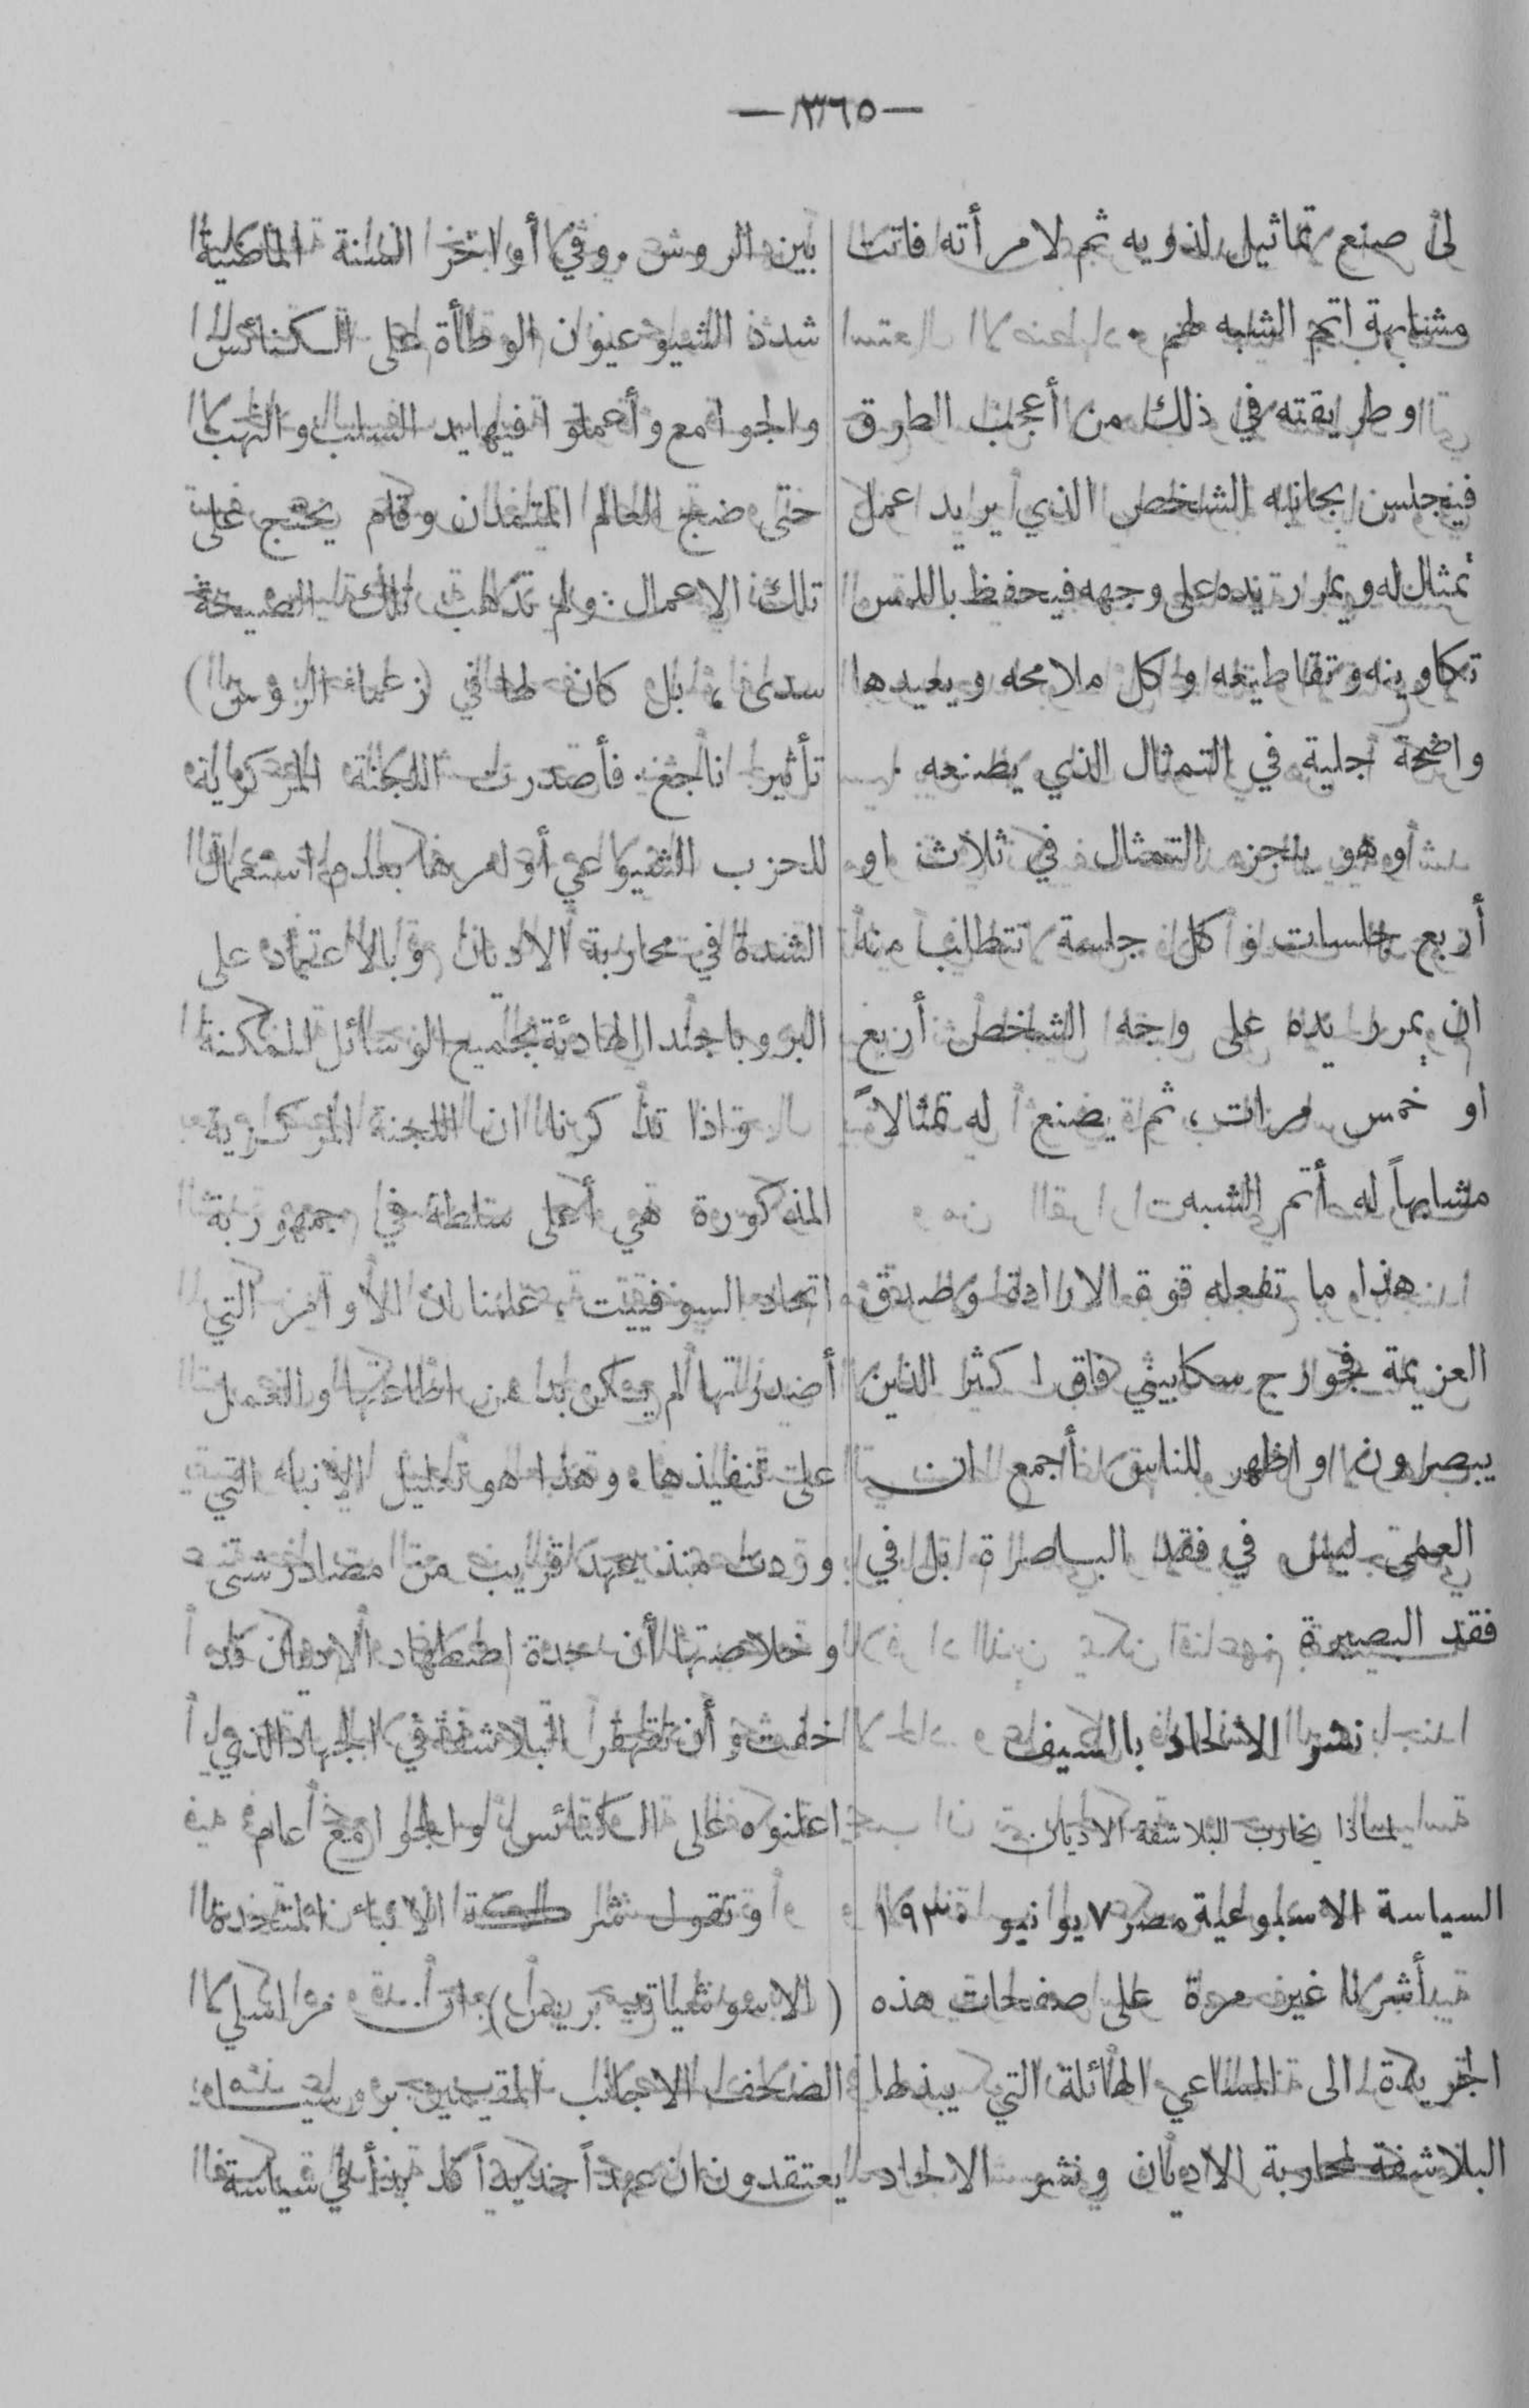 — ٣٦٥ —
لى صنع تماثيل لذويه ثم لامرأته فاتت
مشابهة اتم الشبه لهم .
وطريقته في ذلك من أعجب الطرق
فيجلس بجانبه الشخص الذي يريد عمل
تمثال له ويمرر يده على وجهه فيحفظ باللمس
تكاوينه وتقاطيعه وكل ملامحه ويعيدها
واضحة جلية في التمثال الذي يصنعه .
وهو ينجز التمثال في ثلاث او
أربع جلسات وكل جلسة تتطلب منه
ان يمرر يده على وجه الشخص أربع
او خمس مرات، ثم يصنع له تمثالاً
مشابهاً له أتم الشبه
هذا ما تفعله قوة الارادة وصدق
العزيمة فجوارج سكابيني فاق كثير الذين
يبصرون واظهر للناس أجمع ان
العمى ليس في فقد الباصرة بل في
فقد البصيرة
نشر الالحاد بالسيف
لماذا يحارب البلاشفة الاديان
السياسة الاسبوعية مصر ٧ يونيو ١٩٣٠
أشرنا غير مرة على صفحات هذه
الجريدة الى المساعي الهائلة التي يبذلها
البلاشفة لمحاربة الاديان ونشر الالحاد
بين الروس . وفي أواخر السنة الماضية
شدد الشيوعيون الوطأة على الكنائس
والجوامع وأعملوا فيها يد السلب والنهب
حتى ضج العالم المتمدن وقام يحتج على
تلك الاعمال . ولم تذهب تلك الصيحة
سدى، بل كان لها في (زعماء الروس)
تأثير ناجع . فأصدرت اللجنة المركزية
للحزب الشيوعي أوامرها بعدم استعمال
الشدة في محاربة الاديان وبالاعتماد على
البروباجندا الهادئة بجميع الوسائل الممكنة
واذا تذكرنا ان اللجنة المركزية
المذكورة هي أعلى سلطة في جمهورية
اتحاد السوفييت، علمنا ان الأوامر التي
أصدرتها لم يكن بد من اطاعتها والعمل
على تنفيذها . وهذا هو تعليل الانباء التي
وردت منذ عهد قريب من مصادر شتى
وخلاصتها أن حدة اضطهاد الاديان قد
خفت وأن تقهقر البلاشفة في الجهاد الذي
اعلنوه على الكنائس والجوامع عام
وتقول شركة الانباء المتحدة
(الاسوشياتيد بريس) ان مراسلي
الصحف الاجانب المقيمين بروسيا
يعتقدون ان عهداً جديداً قد بدأ في سياسة